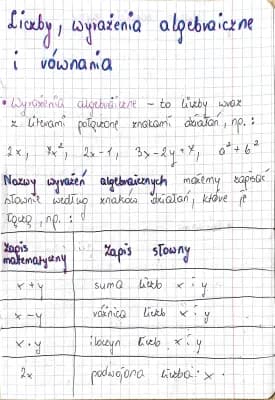 Liczby, wyrażenia algebraiczne
i równania
• Wyrażenia algebraiczne - to liczby wraz
z literami połączone znakami działań, np.:
2x, 7x², 2x-1, 3x-2y+7, a²+b²
Nazwy wyrażeń algebraicznych możemy zapisać
słownie według znaków działań, które je
łączą, np.:
Zapis matematyczny Zapis słowny
x+y suma liczb x i y
x-y różnica liczb x i y
x·y iloczyn liczb x i y
2x podwojona liczba x